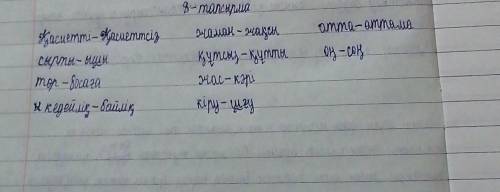 8-тапсырма
Қасиетті-Қасиетсіз жаман-жақсы атта-аттама
сырты-ішы құтсыз-құтты оң-сол
төр-босаға жас-кәрі
кедейлік-байлық кіру-шығу